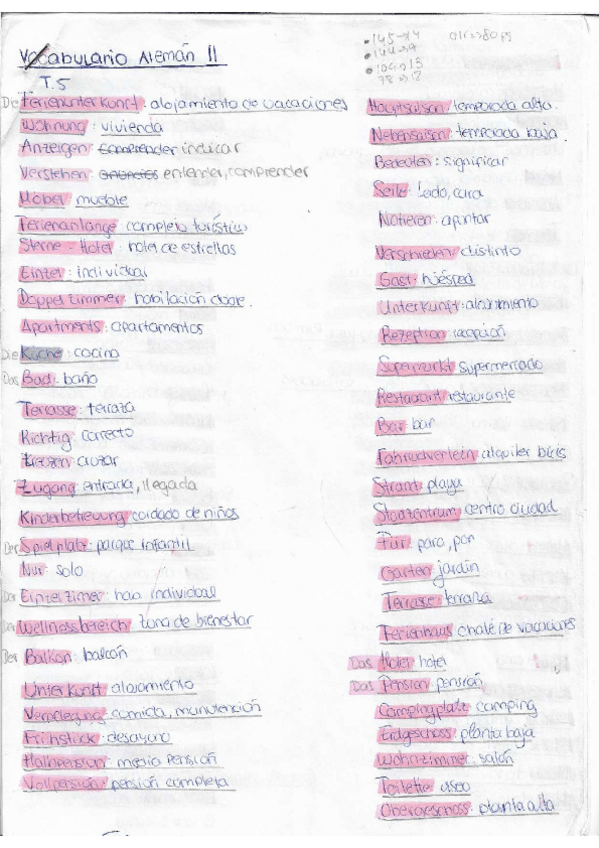 Vocabulario Alemán II
T.5
Die Ferienunterkunft: alojamiento de vacaciones
Wohnung: vivienda
Anzeigen: Comprender indicar
Verstehen: anuncios entender, comprender
Möbel mueble
Ferienanlange complejo turístico
Sterne - Hotel: hotel de estrellas
Einzel: individual
Doppelzimmer: habitación doble.
Apartments: apartamentos
Die Küche: cocina
Das Bad: baño
Terrasse: terraza
Richtig: correcto
cruzar
Zugang: entrada, llegada
Kinderbetreuung cuidado de niños
Der Spielplatz: parque infantil
Nur: solo
Der Einzelzimer: hab individual
Der Wellnessbereich: zona de bienestar
Der Balkon: balcón
Unterkunft alojamiento
Verpflegung: comida, manutención
Frühstück: desayuno
Halbpension: media pensión
Vollpension: pensión completa
145→14
144→9
104→13
78→12
Hauptsaison: temporada alta.
Nebensaison: temporada baja.
Bedeuten: significar
Seite: lado, cara
Notieren: apuntar
Verschieden: distinto
Gast: húesped
Unterkunft: alojamiento
Rezeption: recepción
Supermarkt: supermercado
Restaurant: restaurante
Bar: bar
Fahrradverleih alquiler bicis
Strant: playa
Stadzentrum: centro ciudad
Für: para, por
Garten: jardín
Terrasse: terraza
Ferienhaus chalé de vacaciones
Das Hotel: hotel
Das Pension: pensión
Campingplatz: camping
Erdgeschoss: planta baja
Wohnzimmer: salón
Toilette: aseo
Obergeschoss: planta alta